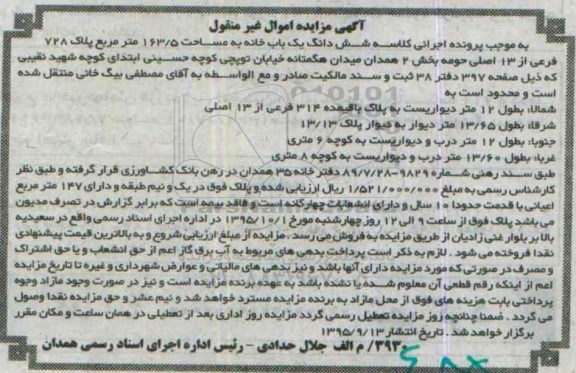 آگهی مزایده اموال غیر منقول
به موجب پرونده اجرائی کلاسه شش دانگ یک باب خانه به مساحت ۱۶۳/۵ متر مربع پلاک ۷۲۸
فرعی از ۱۳ اصلی حومه بخش ۲ همدان میدان هگمتانه خیابان توپچی کوچه حسینی ابتدای کوچه شهید نقیبی
که ذیل صفحه ۳۹۷ دفتر ۳۸ ثبت و سند مالکیت صادر و مع الواسطه به آقای مصطفی بیگ خانی منتقل شده
است و محدود است به
شمالا: بطول ۱۲ متر دیواریست به پلاک باقیمده ۳۱۴ فرعی از ۱۳ اصلی
شرقا: بطول ۱۳/۶۵ متر دیوار به دیوار پلاک ۱۳/۱۳
جنوبا: بطول ۱۲ متر درب و دیواریست به کوچه ۶ متری
غربا: بطول ۱۳/۶۰ متر درب و دیواریست به کوچه ۸ متری
طبق سند رهنی شماره ۹۸۲۹-۸۹/۷/۲۸ دفتر خانه ۳۵ همدان در رهن بانک کشاورزی قرار گرفته و طبق نظر
کارشناس رسمی به مبلغ ۱/۵۲۱/۰۰۰/۰۰۰ ریال ارزیابی شده و پلاک فوق در یک و نیم طبقه و دارای ۱۴۷ متر مربع
اعیانی با قدمت حدودا ۱۰ سال و دارای انشعابات چهارگانه است و فاقد بیمه است که برابر گزارش در تصرف مدیون
می باشد پلاک فوق از ساعت ۹ الی ۱۲ روز چهارشنبه مورخ ۱۳۹۵/۱۰/۱ در اداره اجرای اسناد رسمی واقع در سعیدیه
بالا بر بلوار غنی زادیان از طریق مزایده به فروش می رسد . مزایده از مبلغ ارزیابی شروع و به بالاترین قیمت پیشنهادی
نقدا فروخته می شود . لازم به ذکر است پرداخت بدهی های مربوط به آب برق گاز اعم از حق انشعاب و یا حق اشتراک
و مصرف در صورتی که مورد مزایده دارای آنها باشد و نیز بدهی های مالیاتی و عوارض شهرداری و غیره تا تاریخ مزایده
اعم از اینکه رقم قطعی آن معلوم شده یا نشده باشد به عهده برنده مزایده است و نیز در صورت وجود مازاد وجوه
پرداختی بابت هزینه های فوق از محل مازاد به برنده مزایده مسترد خواهد شد و نیم عشر و حق مزایده نقدا وصول
می گردد . ضمنا چنانچه روز مزایده تعطیل رسمی گردد مزایده روز اداری بعد از تعطیلی در همان ساعت و مکان مقرر
برگزار خواهد شد . تاریخ انتشار ۱۳۹۵/۹/۱۳
۳۹۳/ م الف جلال حدادی - رئیس اداره اجرای اسناد رسمی همدان